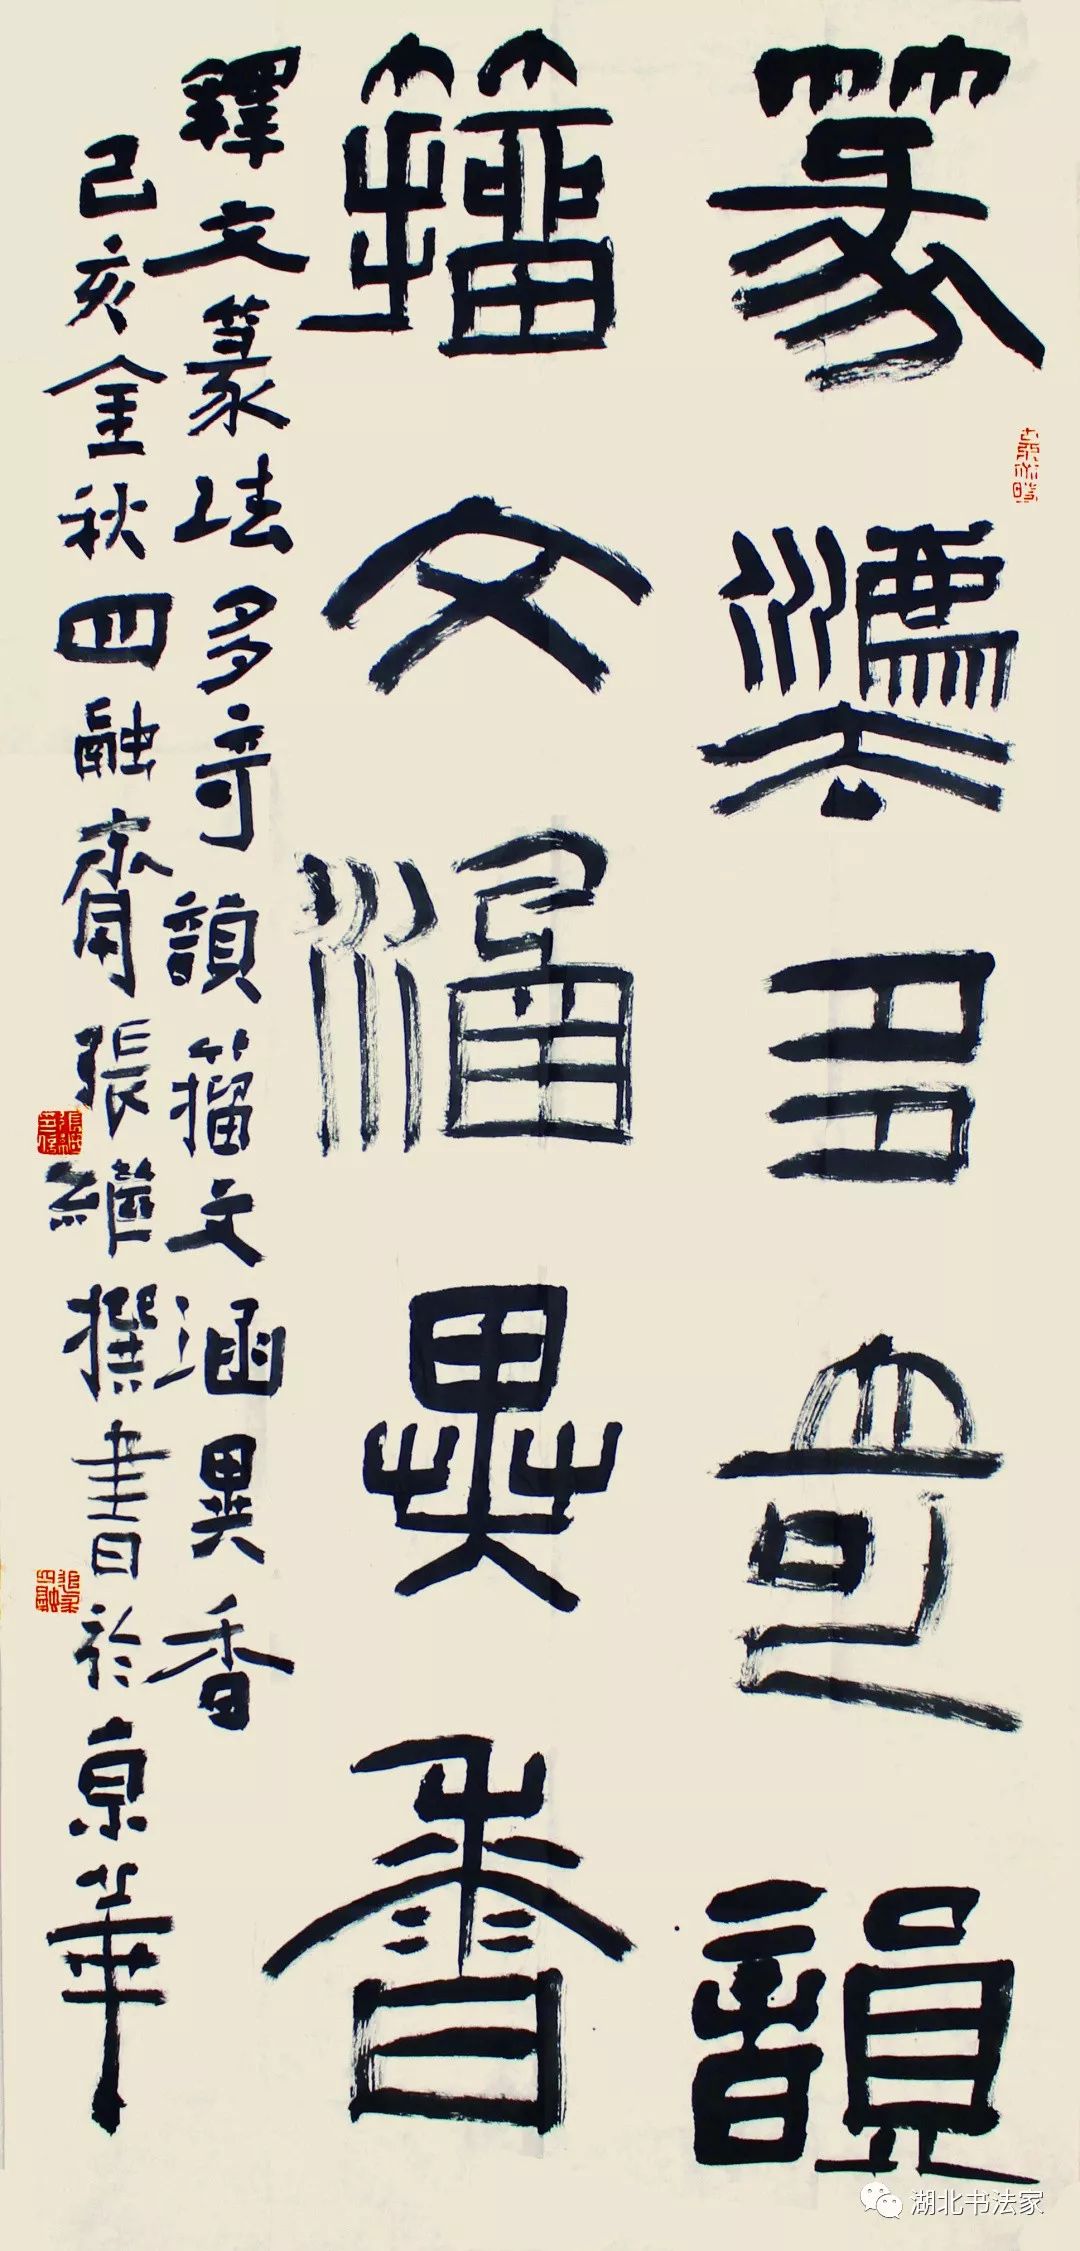 篆灋多奇韻
籀文涵異香
釋文篆法多奇韻籀文涵異香
己亥金秋四融齋張繼撰書於京華
湖北书法家